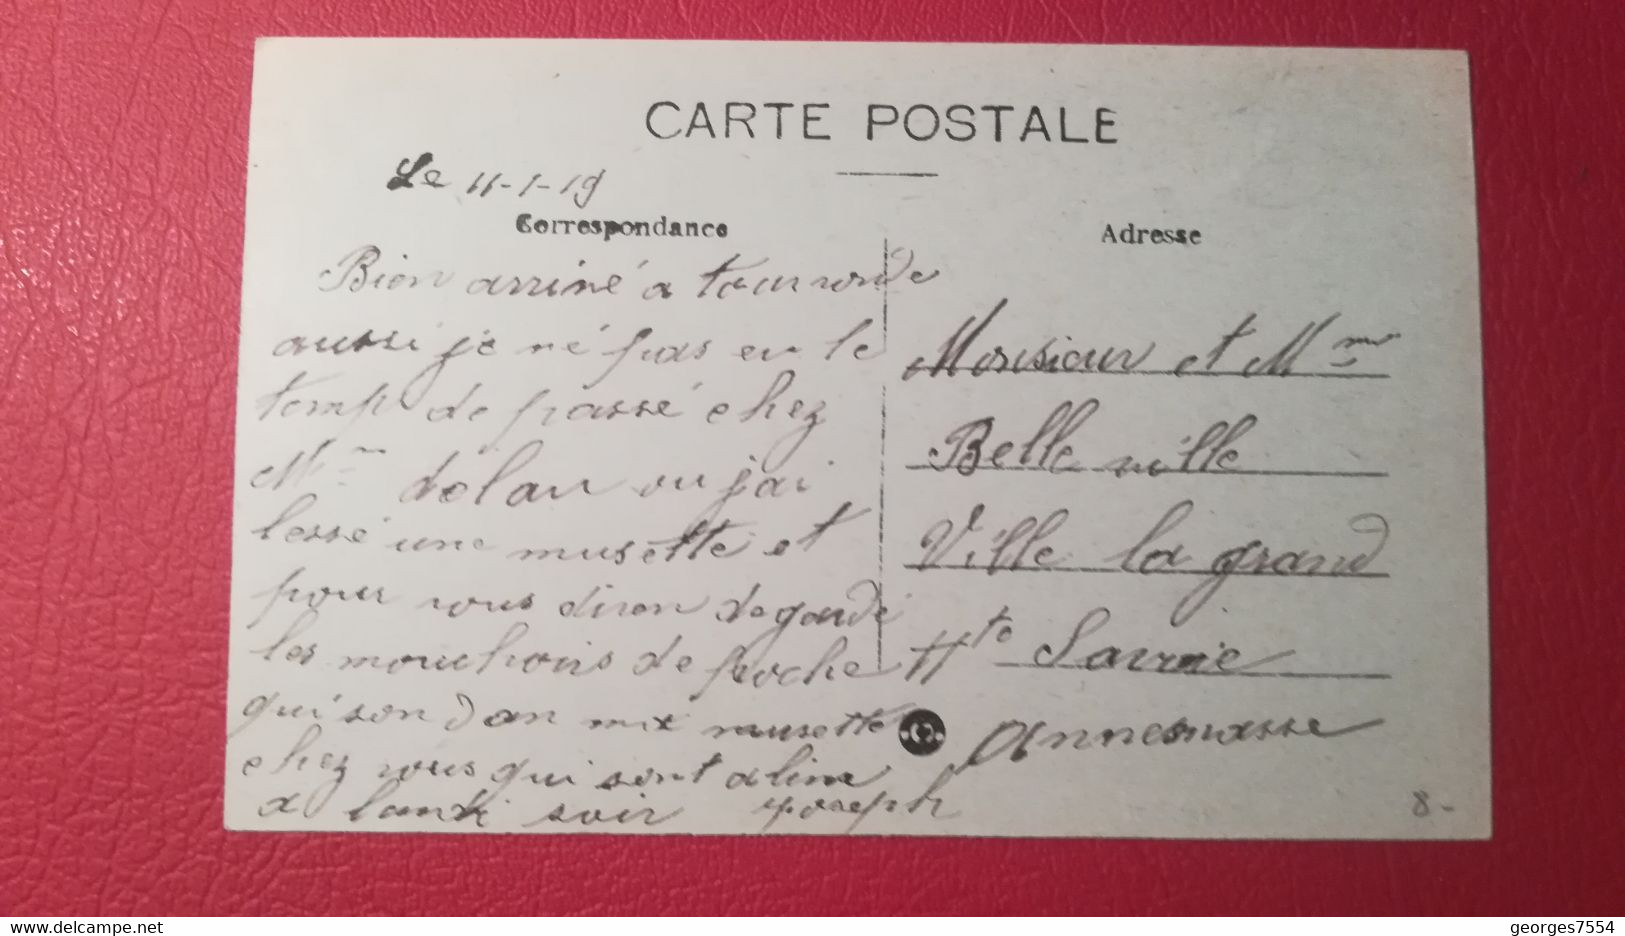 CARTE POSTALE
Le 11-1-19
Correspondance
Bien arrivé a
aussi je né pas eu le
temp de passé chez
Mme delan ou jai
lessé une musette et
pour vous diron de gardé
les mouchois de poche
qui son dan mx musette
chez vous qui sont a line
a landi soir Joseph
Adresse
Monsieur et Mme
Belle ville
Ville la grand
Hte Savoie
Annemasse
8-
georges7554